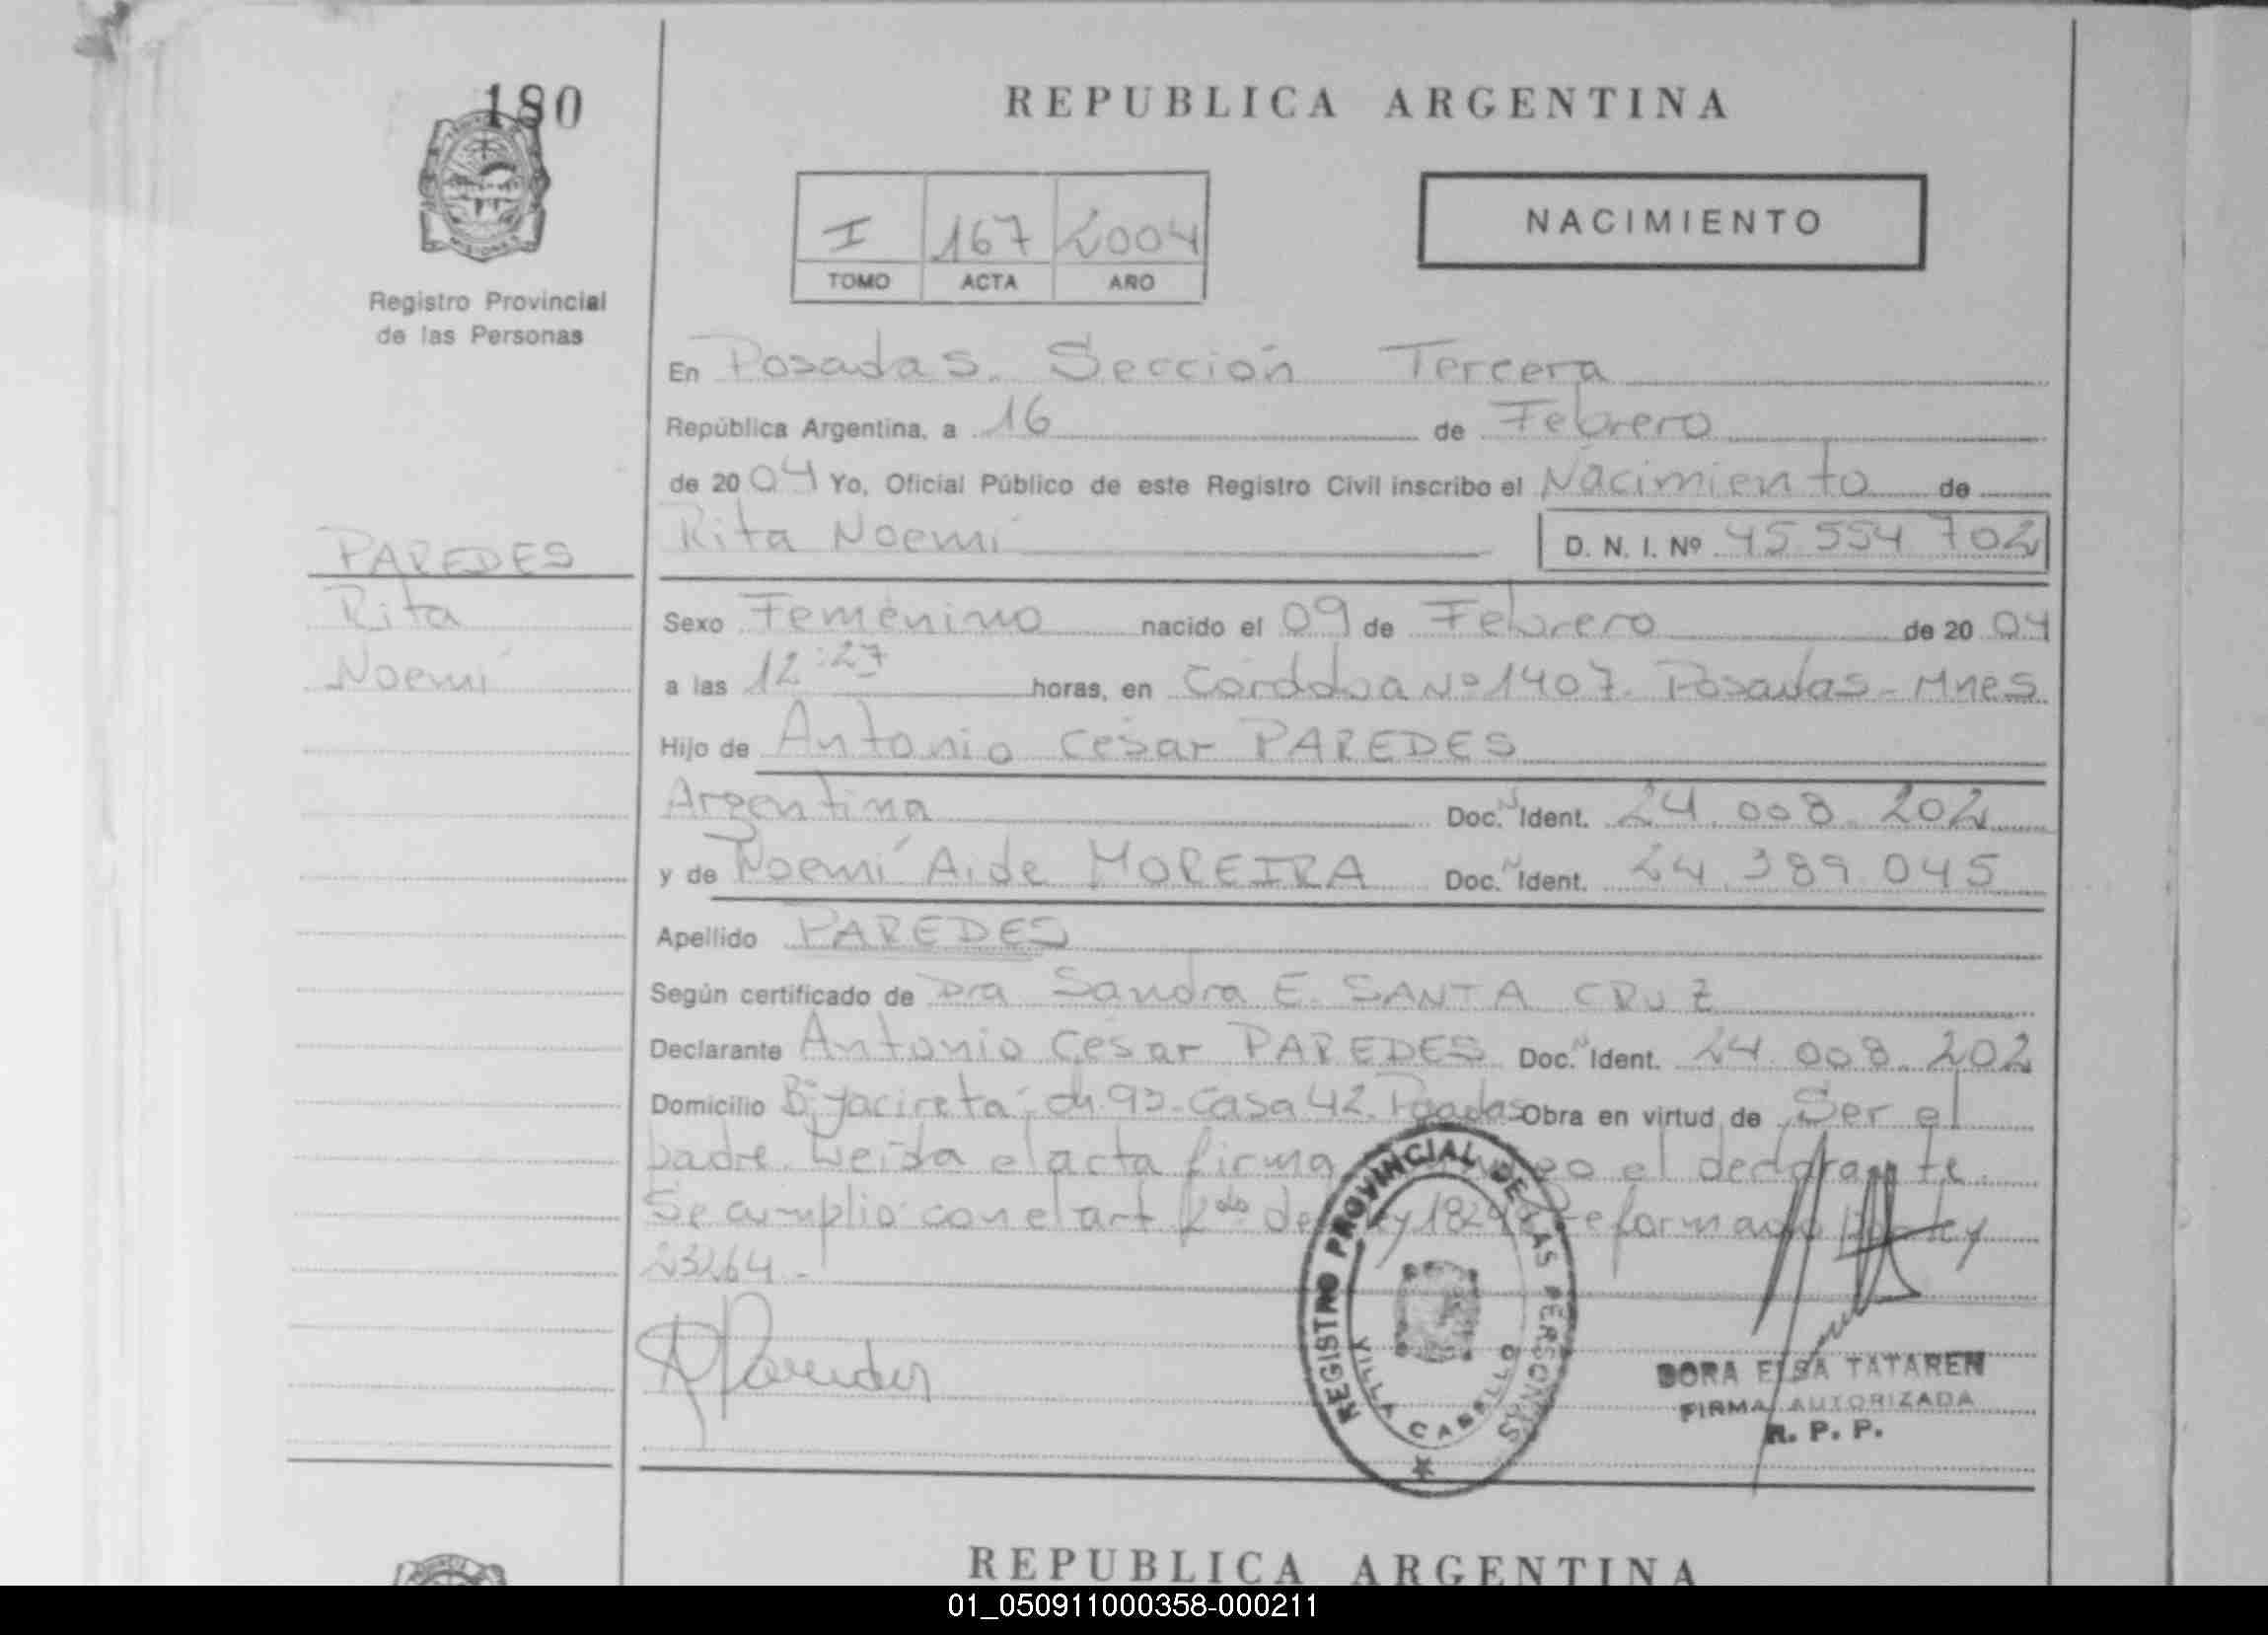 180
REPUBLICA ARGENTINA
NACIMIENTO
I 167 2004
TOMO ACTA AÑO
Registro Provincial
de las Personas
En Posadas. Sección Tercera
República Argentina, a 16 de Febrero
de 2004 Yo, Oficial Público de este Registro Civil inscribo el Nacimiento de
Rita Noemí D. N. I. Nº 45 554 702
PAREDES
Rita
Noemí
Sexo Femenino nacido el 09 de Febrero de 2004
a las 12:27 horas, en Cordoba Nº 1407. Posadas - Mnes
Hijo de Antonio César PAREDES
Argentina Doc. Ident. 24.008.202
y de Noemí Aide MOREIRA Doc. Ident. 24.389.045
Apellido PAREDES
Según certificado de Dra Sandra E. SANTA CRUZ
Declarante Antonio César PAREDES Doc. Ident. 24.008.202
Domicilio Bº Yacireta ch. 93 - Casa 42. Posadas Obra en virtud de Ser el
padre. Leida el acta firma el declarante.
Se cumplio con el art 2do de reformado por Ley
23264.-
REGISTRO PROVINCIAL DE LAS PERSONAS
VILLA CABELLO
DORA ELSA TATAREN
FIRMA AUTORIZADA
R. P. P.
REPUBLICA ARGENTINA
01_050911000358-000211